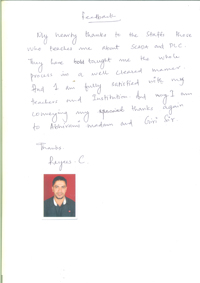 Feedback
My hearty thanks to the Staffs those
who teaches me about SCADA and PLC.
They have taught me the whole
process in a well cleared manner.
And I am fully satisfied with my
teachers and Institution. And I am
conveying my thanks again
to madam and Giri Sir.
Thanks.
C